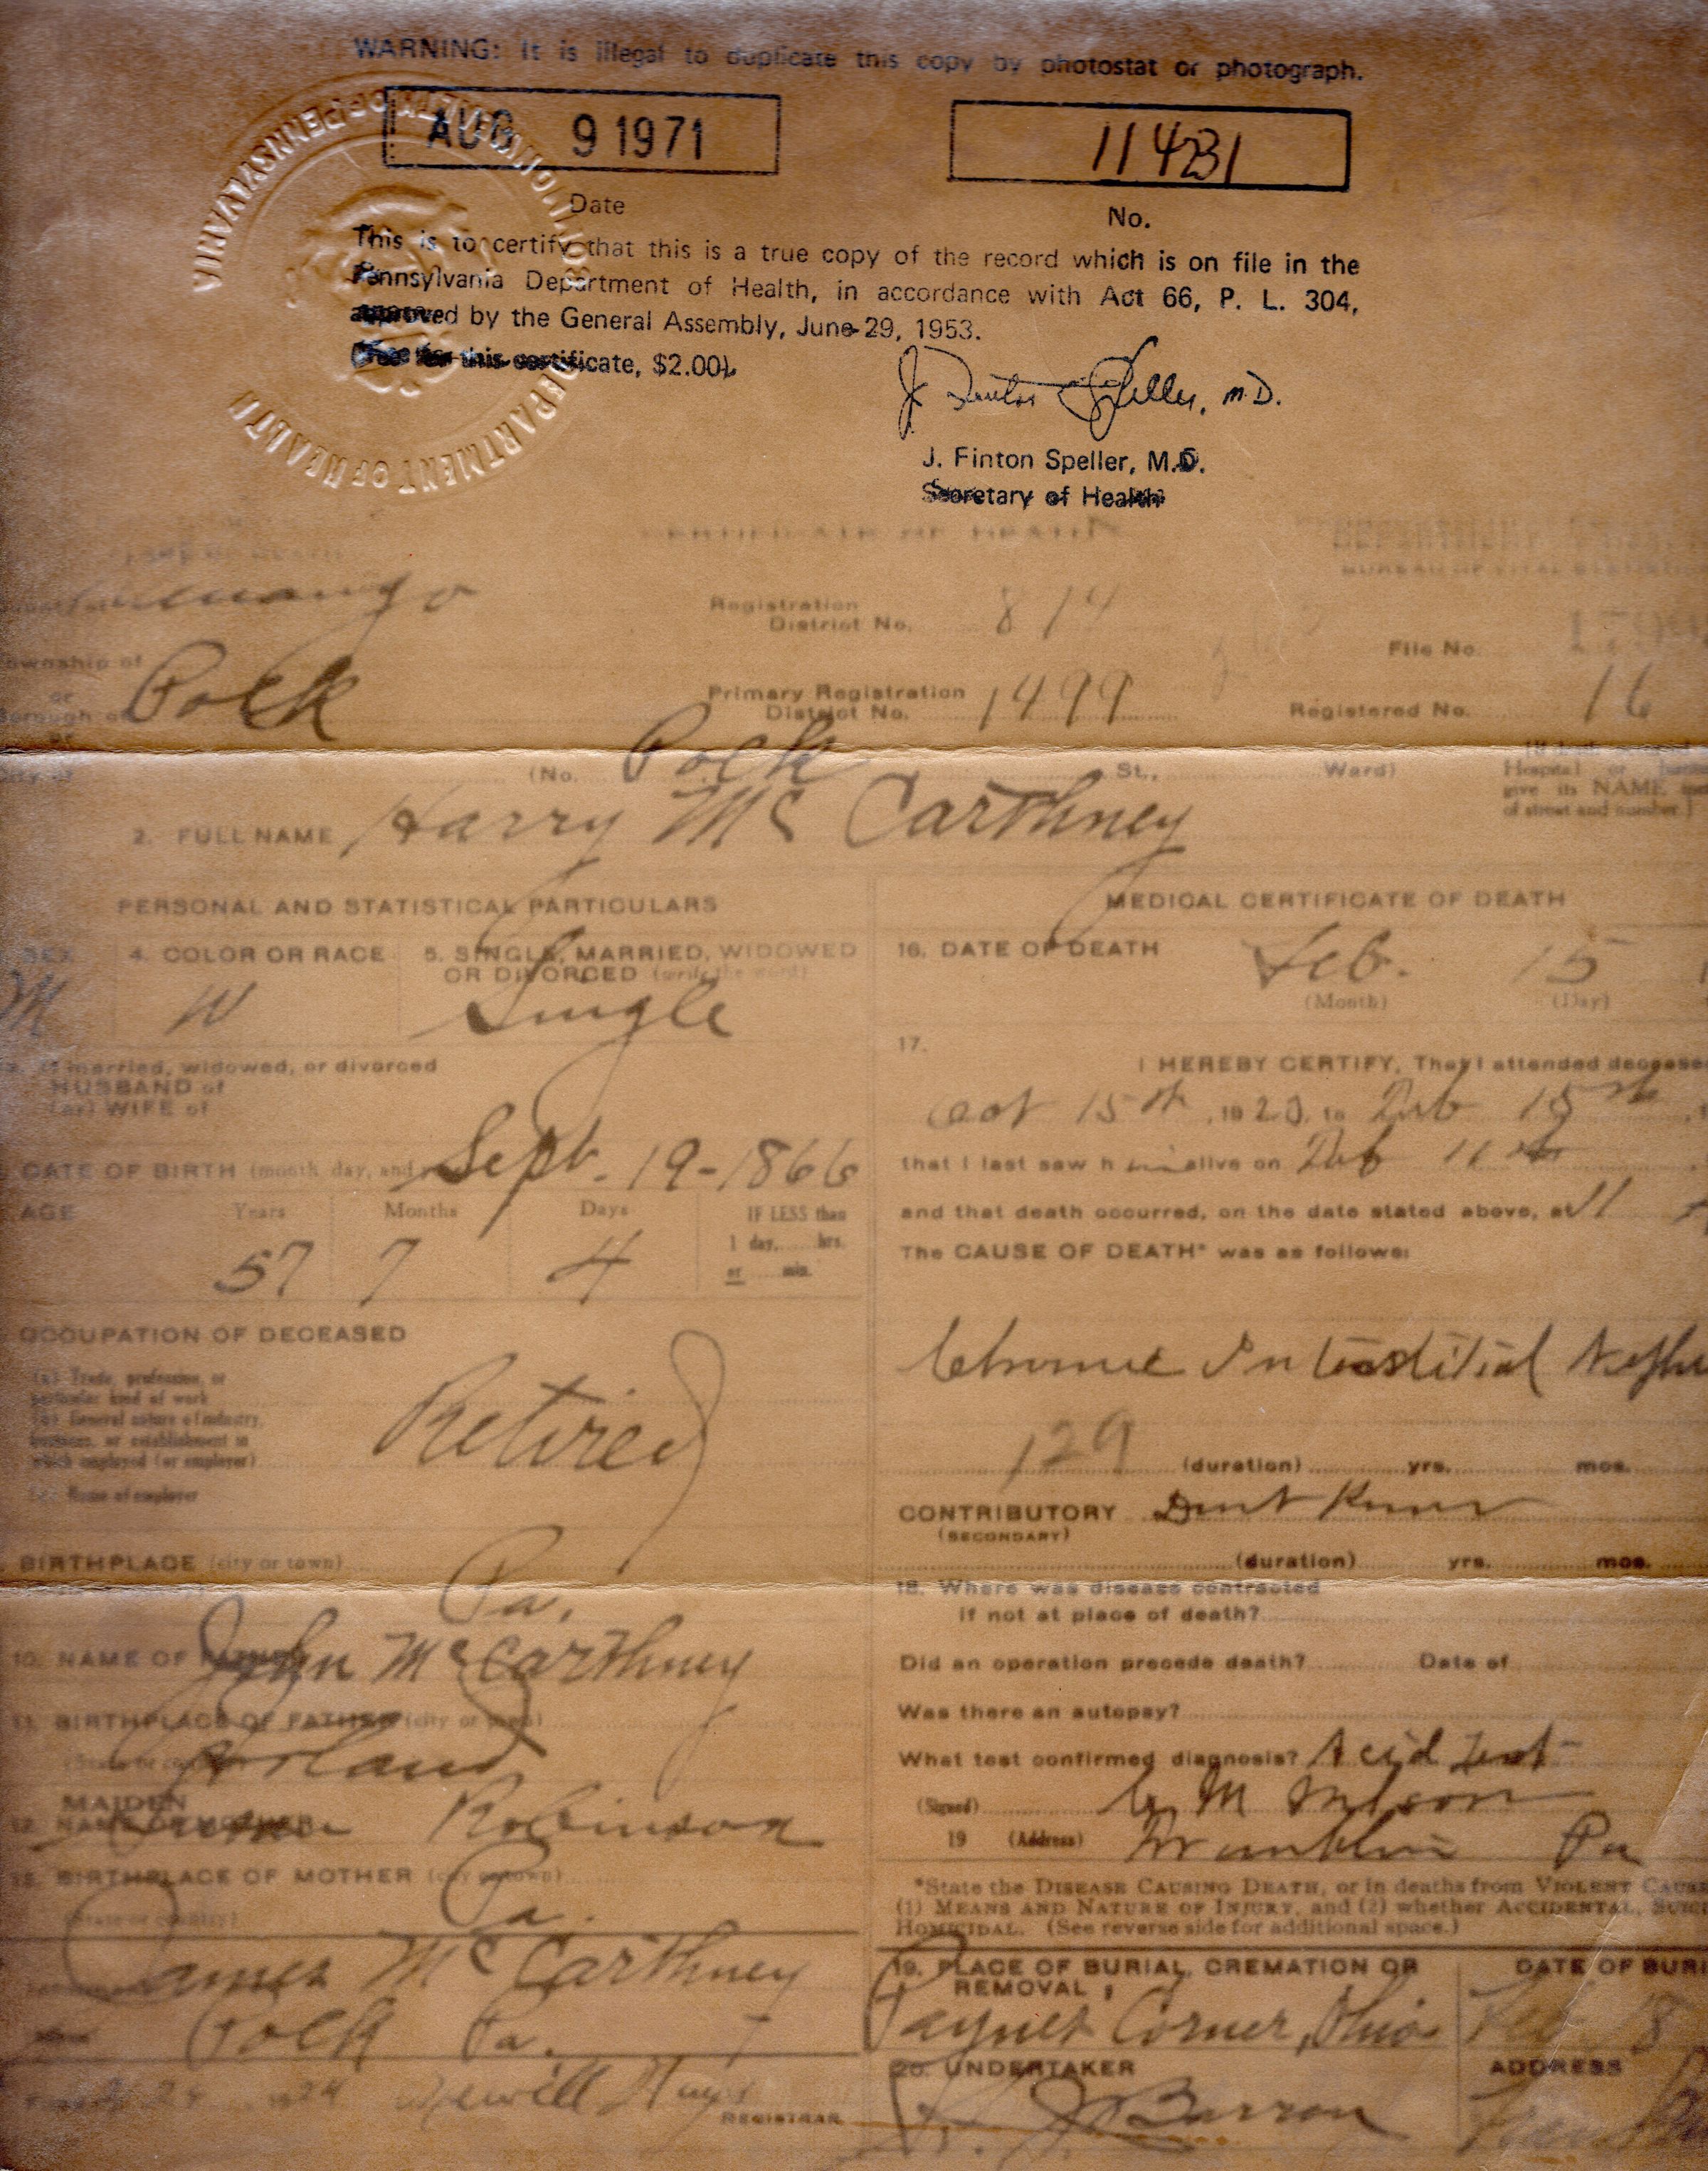 WARNING: It is illegal to duplicate this copy by photostat or photograph.
AUG 9 1971
114231
Date
No.
COMMONWEALTH OF PENNSYLVANIA
DEPARTMENT OF HEALTH
This is to certify that this is a true copy of the record which is on file in the
Pennsylvania Department of Health, in accordance with Act 66, P. L. 304,
approved by the General Assembly, June 29, 1953.
(Fee for this certificate, $2.00)
J. Finton Speller, M.D.
J. Finton Speller, M.D.
Secretary of Health
CERTIFICATE OF DEATH
PLACE OF DEATH
DEPARTMENT
BUREAU OF VITAL STATISTICS
Registration
District No. 814
File No.
Township of
or
Borough of Polk
or
Primary Registration
District No. 1499
Registered No. 16
City of
(No. Polk St., Ward)
Hospital or
give its NAME
of street and number.]
2. FULL NAME Harry Mc Carthney
PERSONAL AND STATISTICAL PARTICULARS
SEX M
4. COLOR OR RACE W
5. SINGLE, MARRIED, WIDOWED
OR DIVORCED (write the word)
Single
If married, widowed, or divorced
HUSBAND of
(or) WIFE of
DATE OF BIRTH (month, day, and Sept. 19-1866
AGE Years Months Days IF LESS than
57 7 4 1 day, hrs.
or min.
OCCUPATION OF DECEASED
(a) Trade, profession, or
particular kind of work
(b) General nature of industry,
business, or establishment in
which employed (or employer)
(c) Name of employer
Retired
BIRTHPLACE (city or town)
Pa.
10. NAME OF FATHER John McCarthney
11. BIRTHPLACE OF FATHER (city or town)
(State or country)
MAIDEN
12. NAME OF MOTHER Robinson
13. BIRTHPLACE OF MOTHER (city or town)
(State or country) Pa.
James McCarthney
Polk Pa.
REGISTRAR
MEDICAL CERTIFICATE OF DEATH
16. DATE OF DEATH Feb. 15
(Month) (Day)
17.
I HEREBY CERTIFY, That I attended
Oct 15th, 1923, to Feb 15th
that I last saw him alive on Feb 11th
and that death occurred, on the date stated above, at 11
The CAUSE OF DEATH* was as follows:
Chronic Interstitial
129
(duration) yrs. mos.
CONTRIBUTORY Dont Know
(SECONDARY)
(duration) yrs. mos.
18. Where was disease contracted
if not at place of death?
Did an operation precede death? Date of
Was there an autopsy?
What test confirmed diagnosis? Acid Test
(Signed)
19 (Address) Franklin Pa
*State the DISEASE CAUSING DEATH, or in deaths from VIOLENT
(1) MEANS AND NATURE OF INJURY, and (2) whether ACCIDENTAL,
HOMICIDAL. (See reverse side for additional space.)
19. PLACE OF BURIAL, CREMATION OR
REMOVAL
Paynes Corner, Ohio
DATE OF
Feb 18
20. UNDERTAKER
Barron
ADDRESS